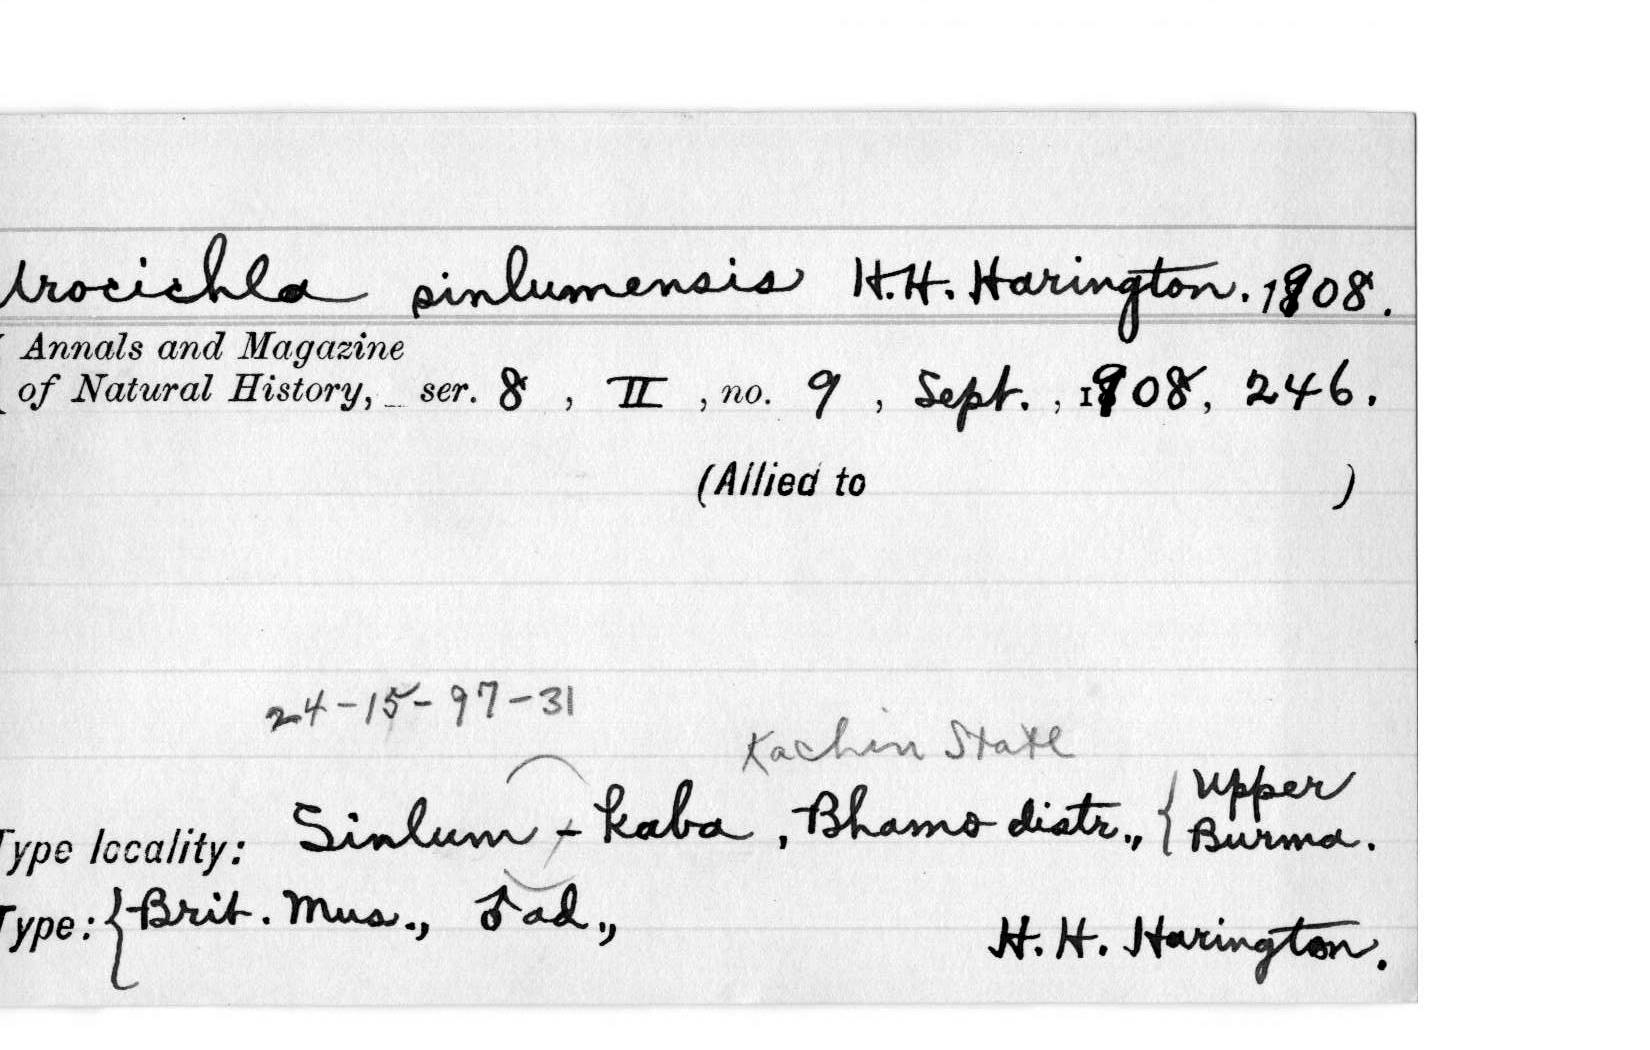 Urocichla sinlumensis H.H. Harington. 1908.
Annals and Magazine
of Natural History, ser. 8, II, no. 9, Sept., 1908, 246.
(Allied to )
24-15-97-31
Kachin State
Type locality: Sinlum-Kaba, Bhamo distr., { Upper
Burma.
Type: { Brit. Mus., ♂ ad.,
H. H. Harington.